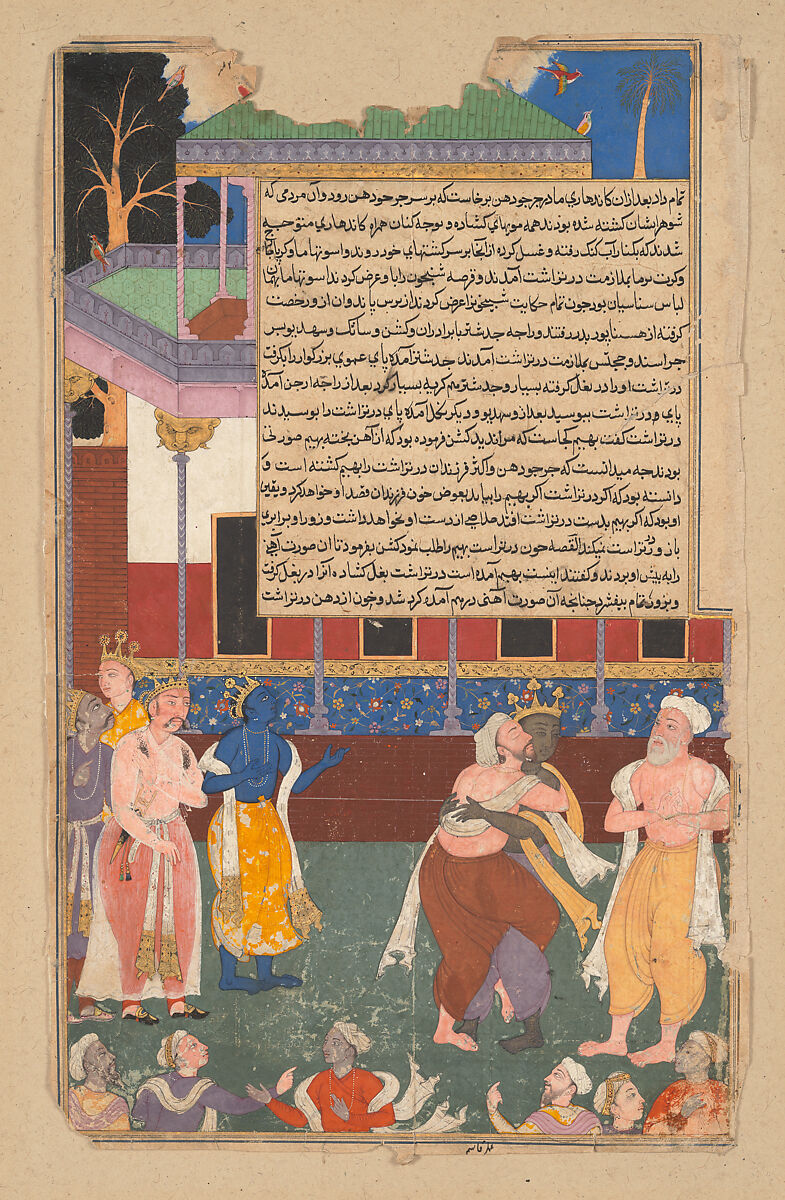 تمام داد بعد از ان کاندهاری مادر جرجودهن برخاست که بر سر جرجودهن رود و آن مردمی که
شوهر ایشان کشته شده بودند همه مویهای کشاده و نوحه کنان همراه کاندهاری متوجه
شدند که بکنار آب کنک رفته و غسل کرده از آنجا بر سر کشتهای خود روند واسونهاما و کرپاچارج
وکرت برما بملازمت درتراشت آمدند و قصه شبیخون را با و عرض کردند اسونهاما بهمان
لباس سناسیان بود چون تمام حکایت شبیخون را عرض کردند از ترس پاندوان از و رخصت
کرفته از هستناپور بدر رفتند و راجه جدشتر با برادران و کشن و ساتک و سهدیو پسر
جراسند و بملازمت درتراشت آمدند جدشتر آمده پای عموی بزرکوار را بکرفت
درتراشت او را در بغل کرفته بسیار و جدشتر هم کریه بسیار کرد بعد از راجه ارجن آمده
پای درتراشت ببوسید بعد از و سهدیو و دیکر نکل آمده پای درتراشت را بوسیدند
درتراشت کفت بهیم کجاست که مرا ندید کشن فرموده بود که از آهن پخته بهیم صورتی
بودند چه میدانست که جرجودهن و اکثر فرزندان درتراشت را بهیم کشته است و
دانسته بود که اکر درتراشت اکر بهیم را بیابد بعوض خون فرزندان قصد او خواهد کرد و یقین
او بود که اکر بهیم بدست درتراشت افتد از دست او نخواهد داشت و زور او برابری
با زور درتراشت نمیکند القصه چون درتراست بهیم را طلب نمود کشن بفرمود تا ان صورت آهنی
را به پیش او بردند و کفتند اینست بهیم آمده است درتراشت بغل کشاده آنرا در بغل کرفت
و بزور تمام بیفشرد چنانچه آن صورت آهنی درهم آمده کرد شد و خون از دهن درتراشت